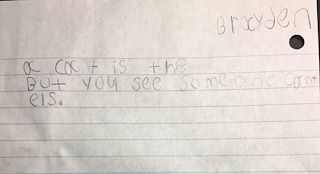 Brayden
a cat is the
But you see someone can
els.